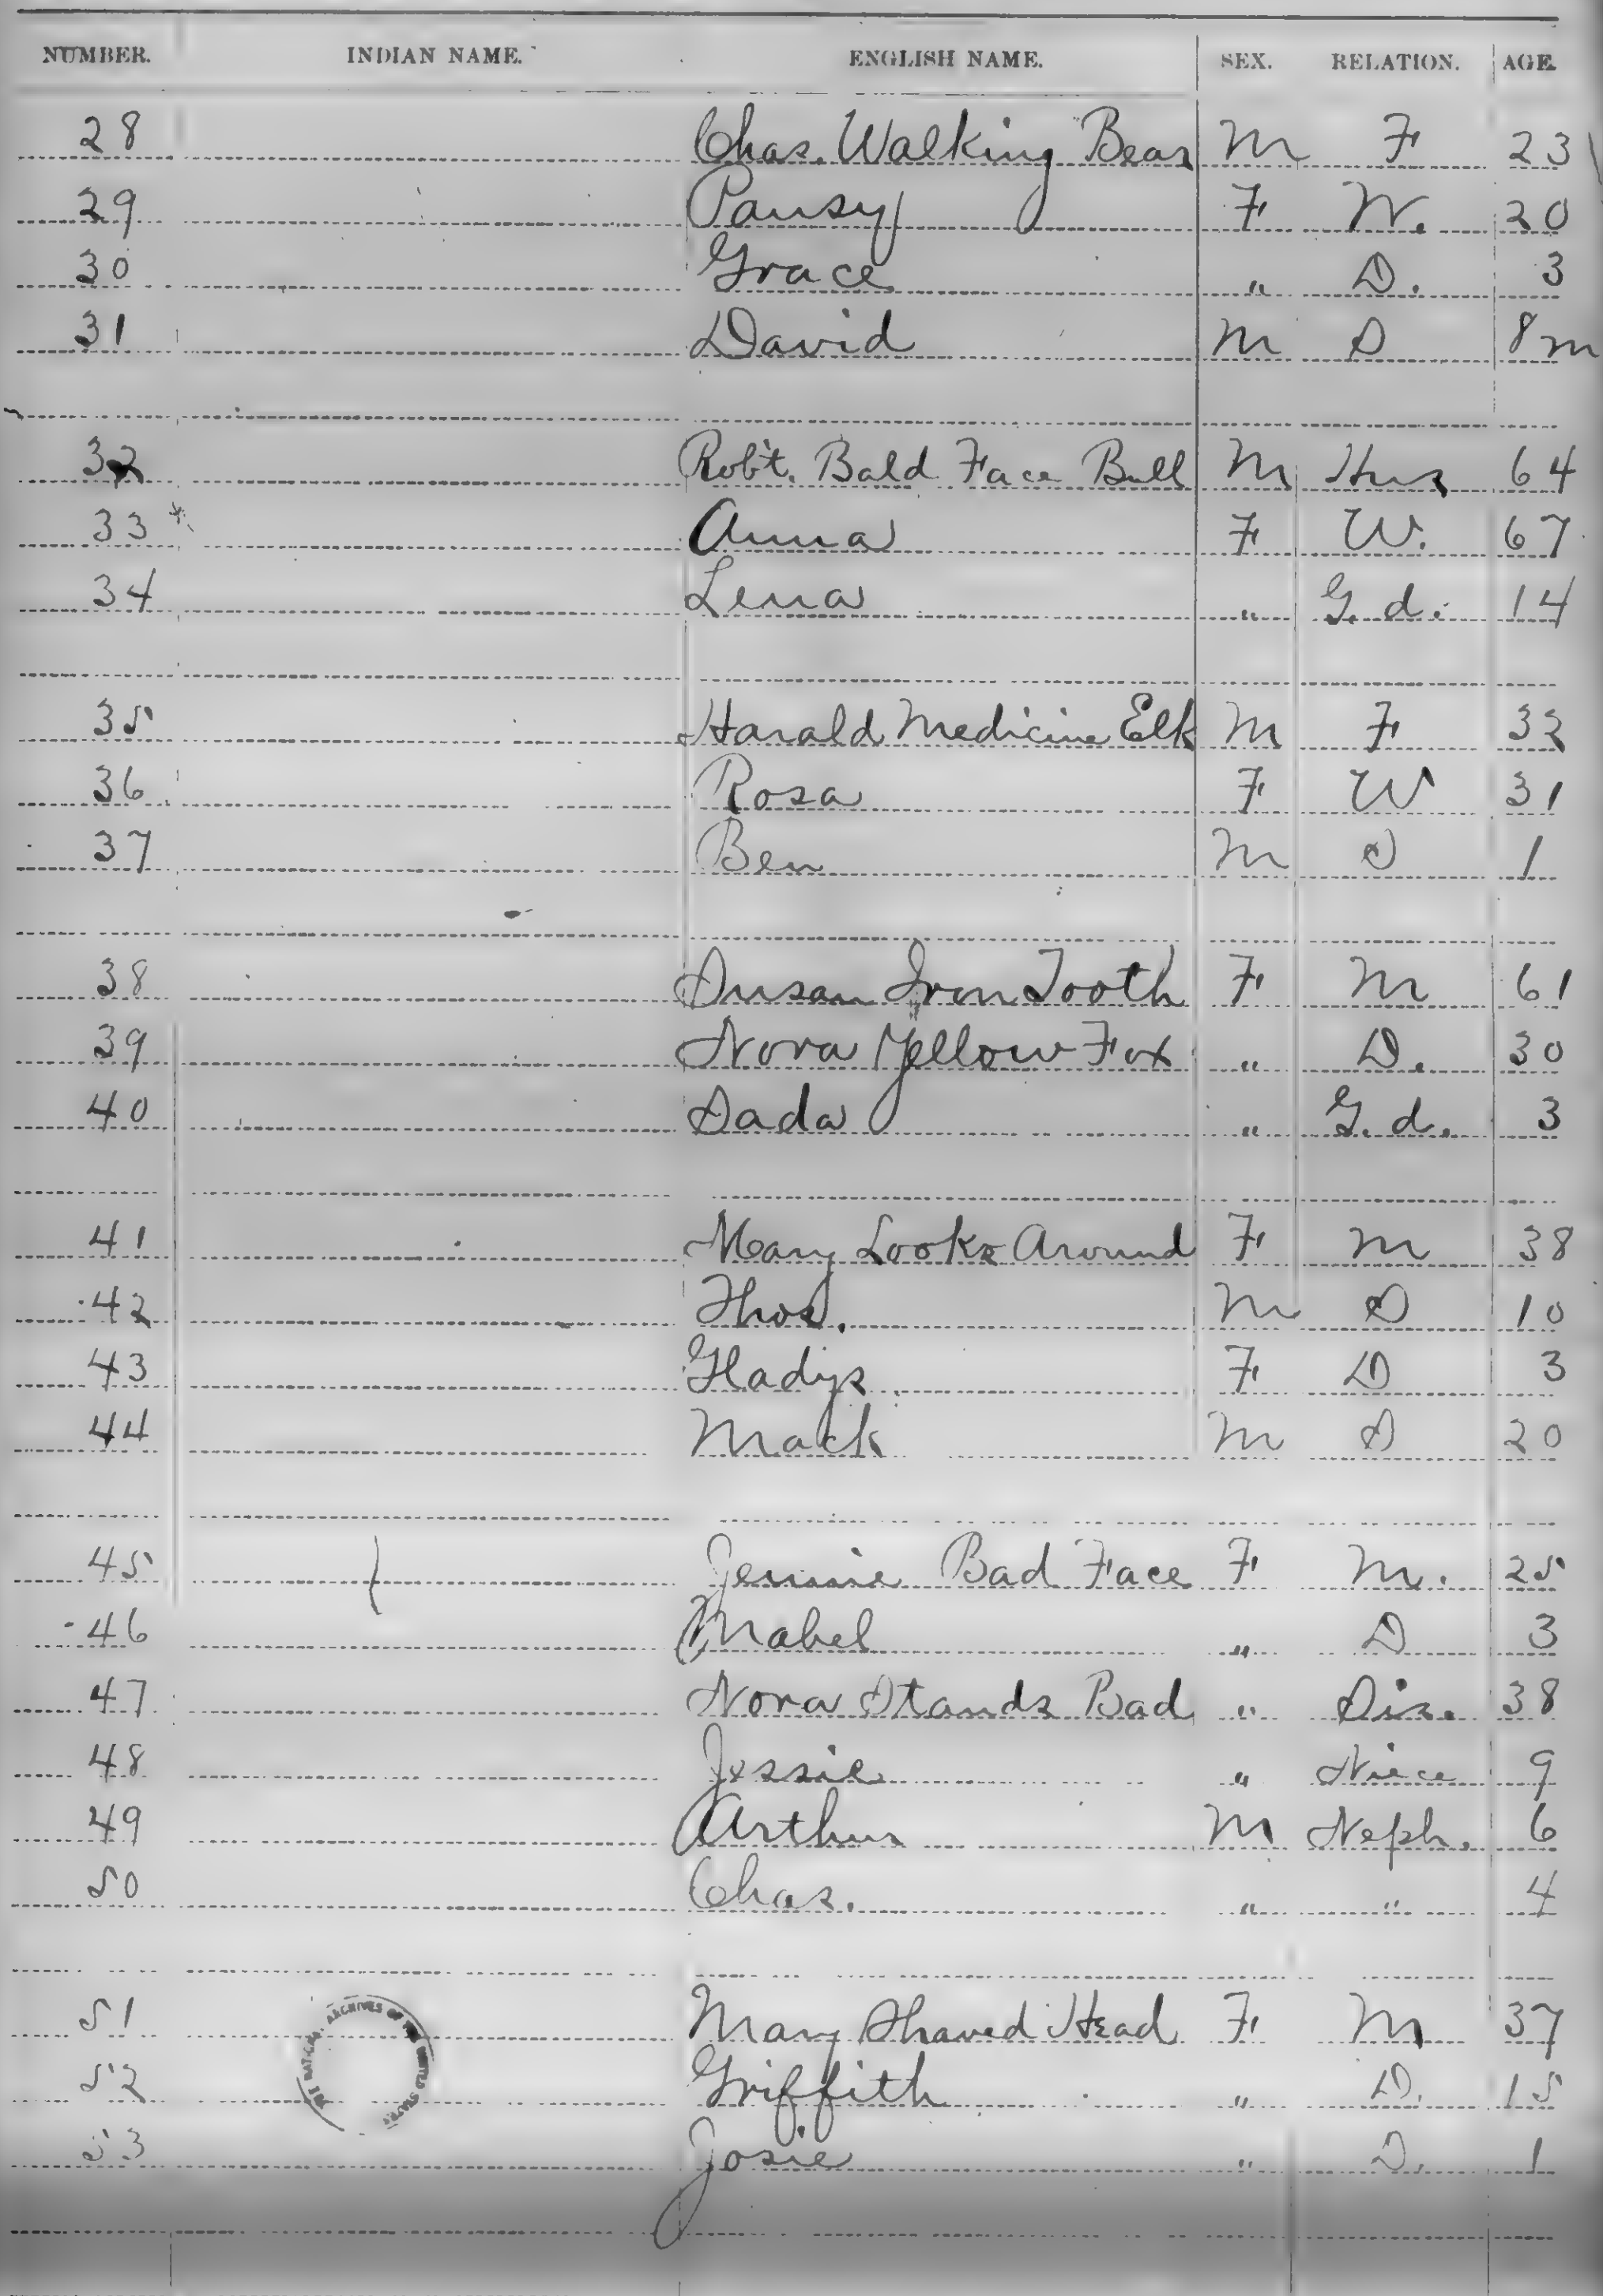 NUMBER. INDIAN NAME. ENGLISH NAME. SEX. RELATION. AGE.
28 Chas. Walking Bear M F 23
29 Pansy F W. 20
30 Grace " D. 3
31 David M S 8m
32 Rob't. Bald Face Bull M Hus 64
33 * Anna F W. 67
34 Lena " G. d. 14
35 Harald Medicine Elk M F 32
36 Rosa F W 31
37 Ben M S 1
38 Susan Iron Tooth F M 61
39 Nora Yellow Fox " D. 30
40 Sada " G. d. 3
41 Mary Looks Around F M 38
42 Thos. M S 10
43 Gladys F D 3
44 Mack M S 20
45 Jennie Bad Face F M. 25
46 Mabel " D. 3
47 Nora Stands Bad " Sis. 38
48 Jessie " Niece 9
49 Arthur M Neph. 6
50 Chas. " " 4
51 Mary Shaved Head F M 37
52 Griffith " D. 15
53 Josie " D. 1
THE NATIONAL ARCHIVES OF THE UNITED STATES